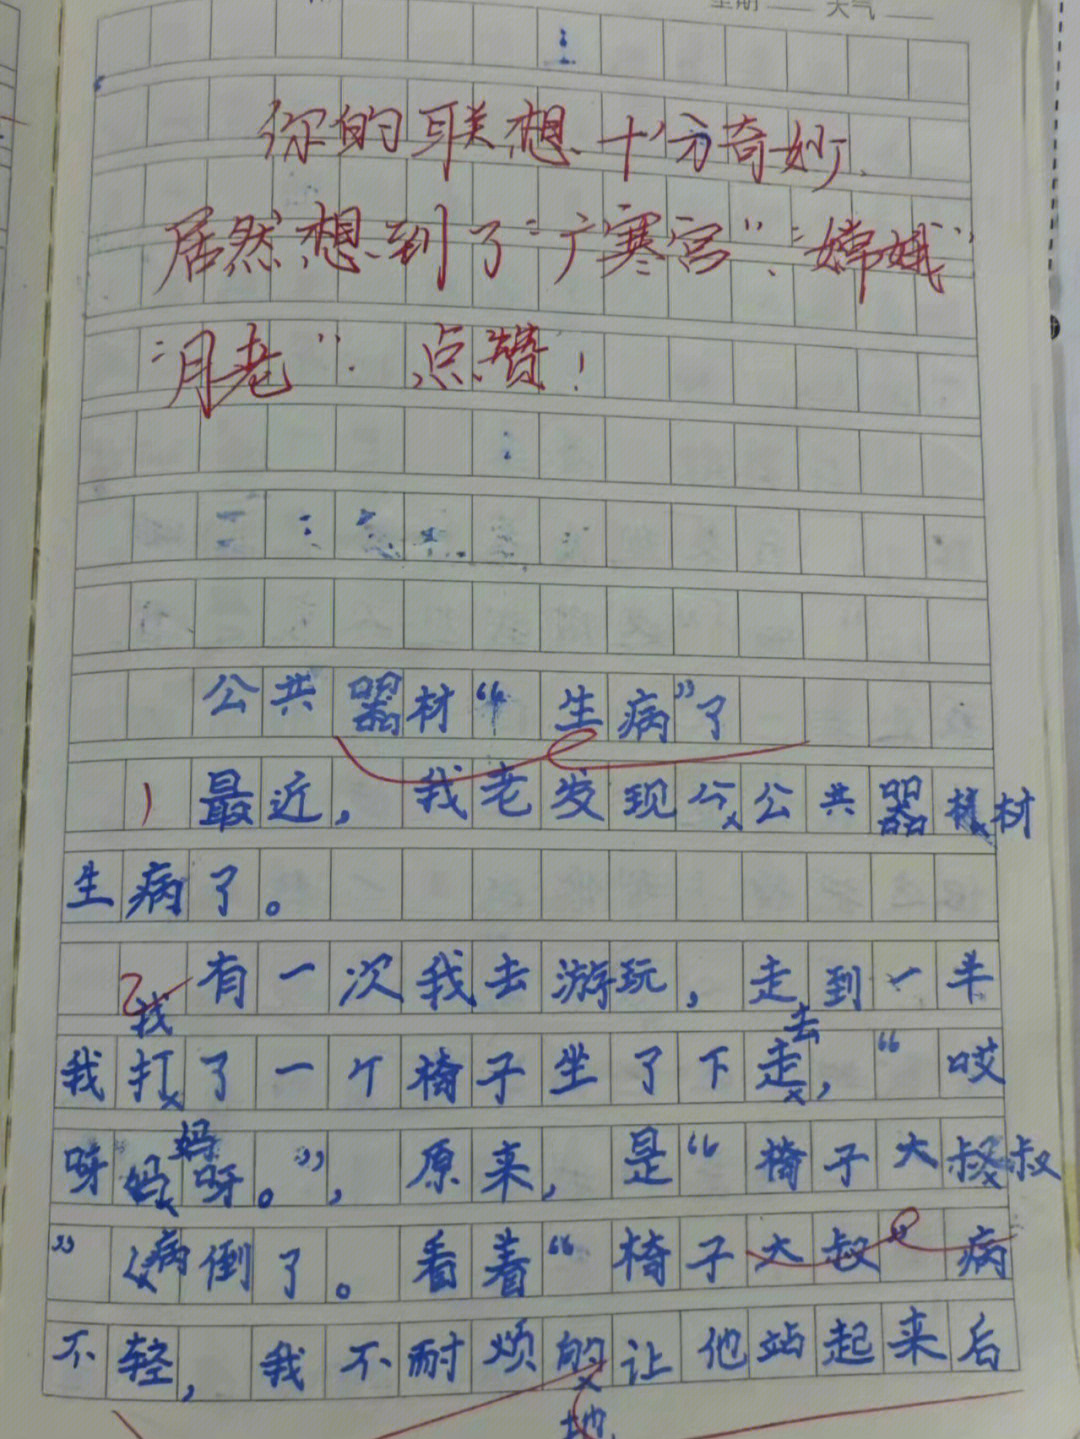 星期 天气
你的联想十分奇妙.
居然想到了“广寒宫”“嫦娥”
“月老”. 点赞!
公共器材“生病”了
最近,我老发现公公共器材
生病了。
有一次我去游玩,走到一半
找
去
我打了一个椅子坐了下走,“哎
妈
呀妈呀。”,原来,是“椅子大叔叔
”病倒了。看着“椅子大叔”病
不轻,我不耐烦的让他站起来后
地